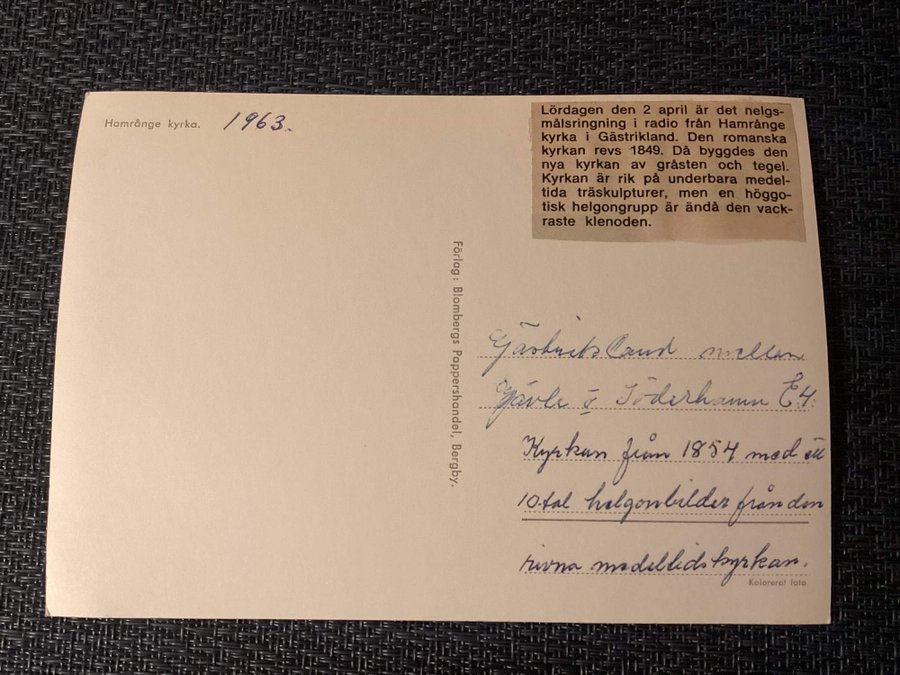 Hamrånge kyrka.
1963.
Lördagen den 2 april är det nelgs-
målsringning i radio från Hamrånge
kyrka i Gästrikland. Den romanska
kyrkan revs 1849. Då byggdes den
nya kyrkan av gråsten och tegel.
Kyrkan är rik på underbara medel-
tida träskulpturer, men en höggo-
tisk helgongrupp är ändå den vack-
raste klenoden.
Förlag: Blombergs Pappershandel, Bergby.
Gästrikland mellan
Gävle o Söderhamn E4.
Kyrkan från 1854 med ett
10-tal helgonbilder från den
rivna medeltidskyrkan.
Kolorerat foto